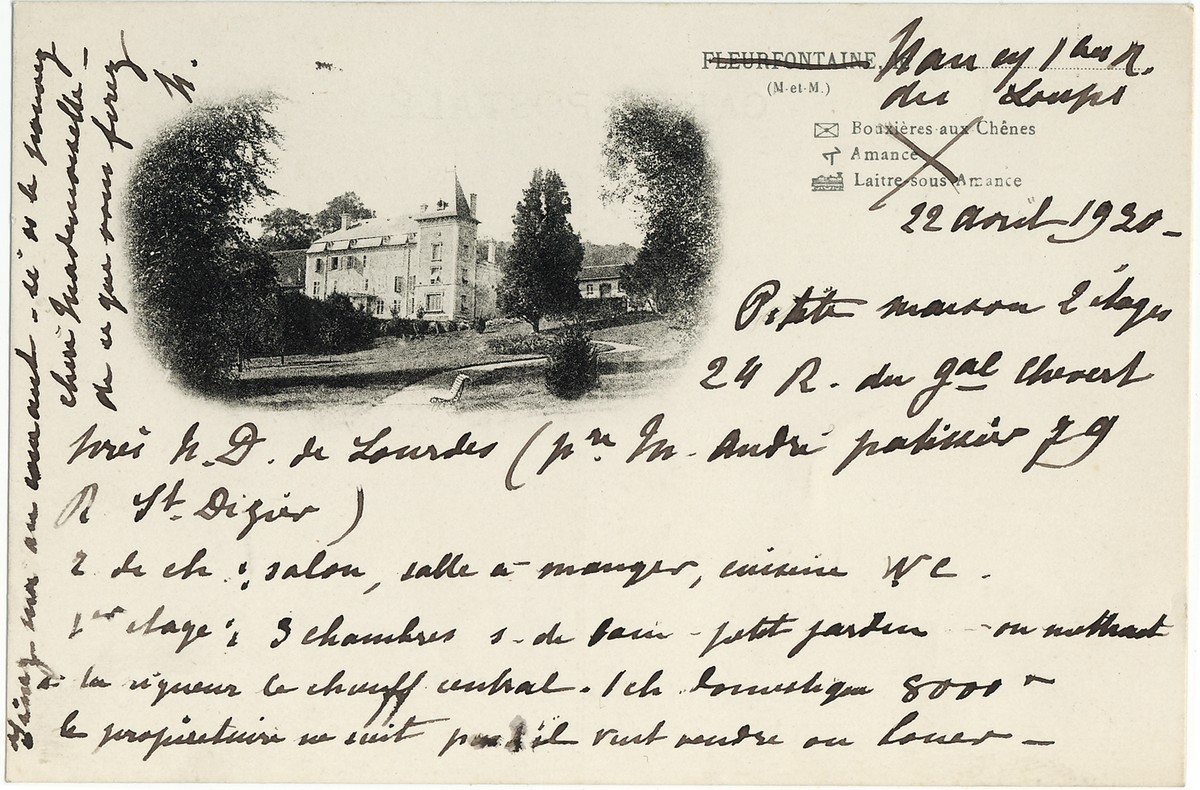 FLEURFONTAINE, Nancy 1 bis R.
(M-et-M.)
des Loups
Bouxières-aux-Chênes
Amance
Laitre-sous-Amance
22 avril 1920 -
Petite maison 2 étages
24 R. du gal Chevert
près N.D. de Lourdes (prre M. André patissier 79
R St. Dizier)
R de ch : salon, salle à manger, cuisine W C.
1er étage : 3 chambres s. de bain - petit jardin - on mettrait
à la rigueur le chauff central. 1 ch domestique 8000 -
le propriétaire ne sait pas s'il veut vendre ou louer -
Tenez moi au courant - si vs le pouvez
chère Mademoiselle -
de ce que vous ferez